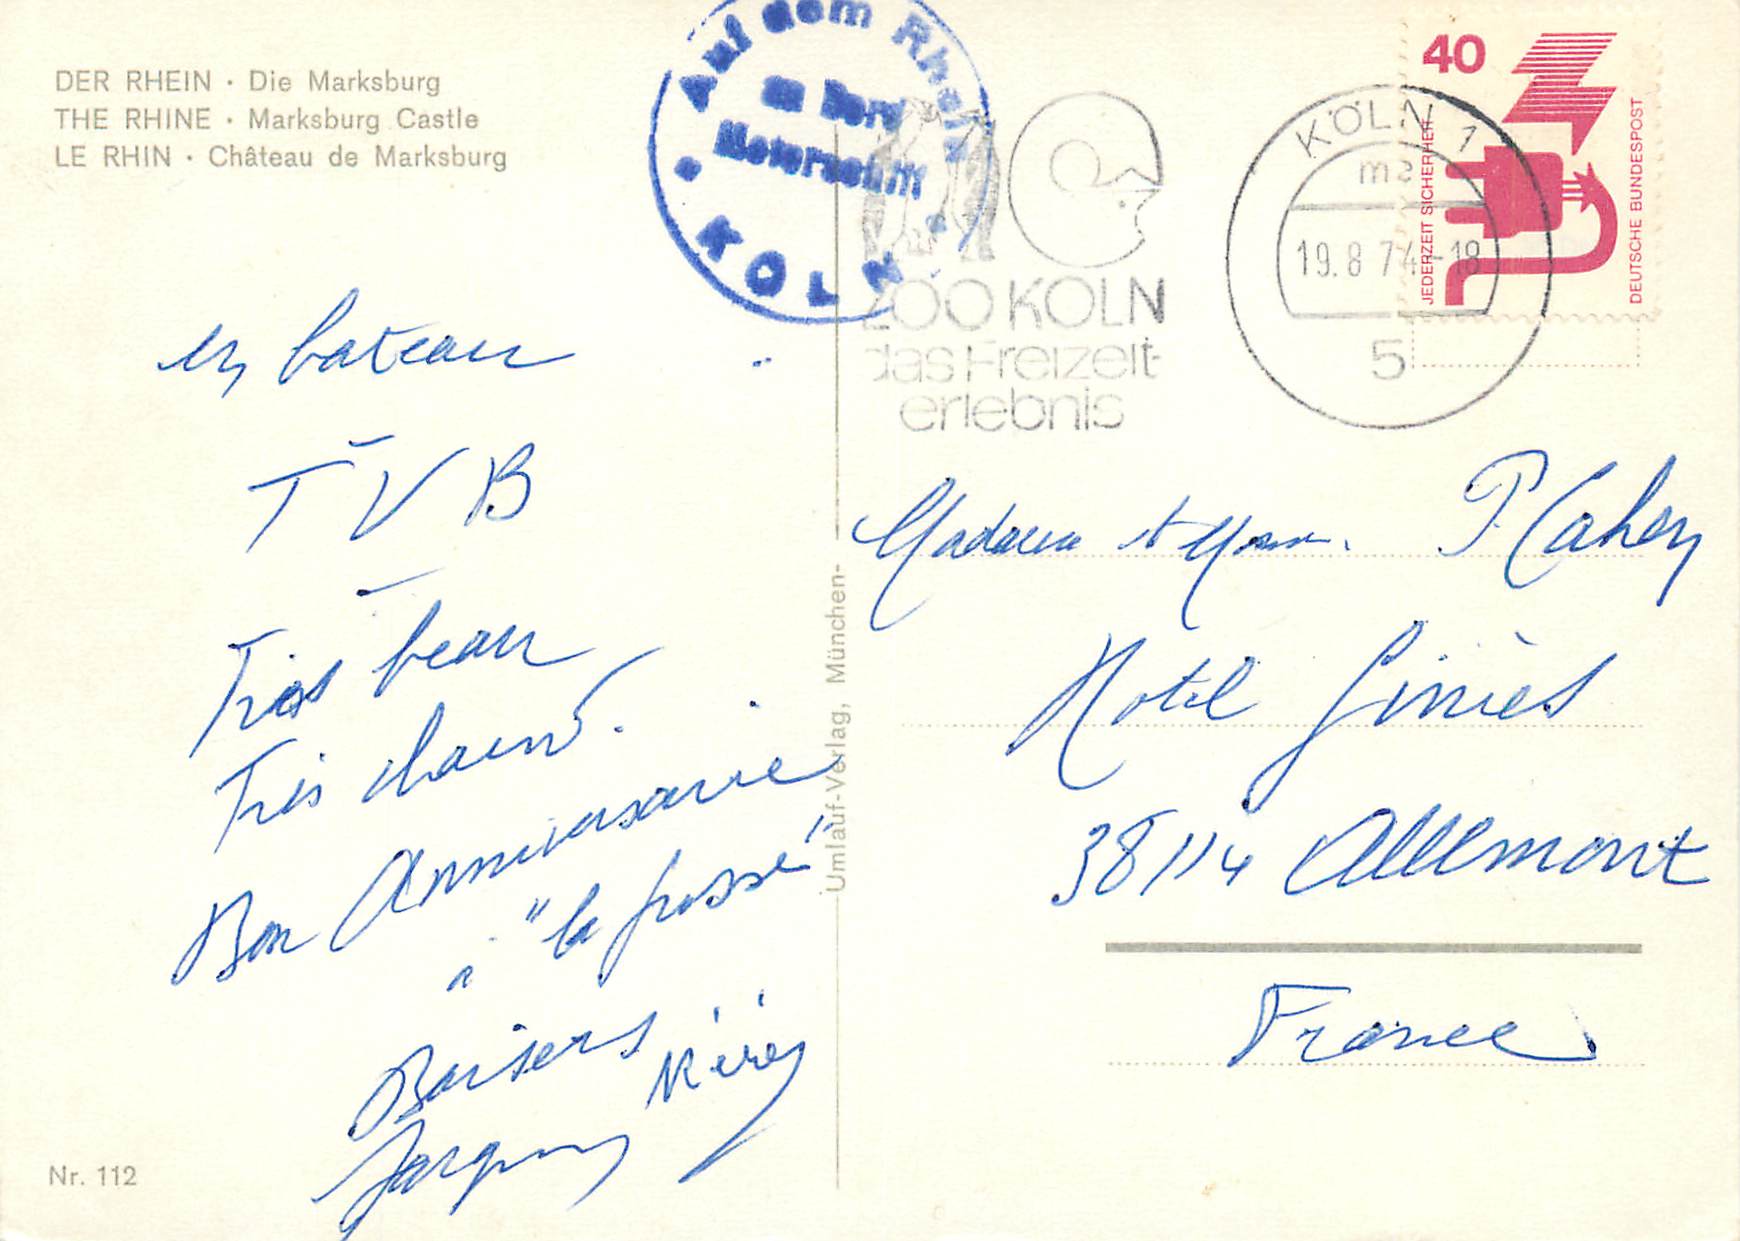 DER RHEIN · Die Marksburg
THE RHINE · Marksburg Castle
LE RHIN · Château de Marksburg
Auf dem Rhein
an Bord
Motorschiff
KÖLN
ZOO KÖLN
das Freizeit-
erlebnis
KÖLN 1
mz
19.8.74-18
5
40
JEDERZEIT SICHERHEIT
DEUTSCHE BUNDESPOST
en bateau
T V B
Très beau
Très chaud.
Bon Anniversaire
à "la
Baisers
Umlauf-Verlag, München-
Madame et Monsieur P Cahen
Hotel Giniès
38114 Allemont
France
Nr. 112